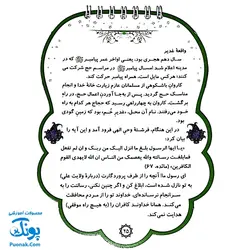 واقعهٔ غدیر
سال دهم هجری بود، یعنی اواخر عمر پیامبر ﷺ که در
مدینه اعلام شد امسال پیامبر ﷺ در مراسم حج شرکت می
کند؛ هرکس مایل است، همراه پیامبر حرکت کند.
کاروان باشکوهی از مسلمانان عازم زیارت خانهٔ خدا و انجام
مناسک حج گردید. پس از به‌جا آوردن اعمال حج، در راه
برگشت، کاروان به چهارراهی رسید که حجاج هر کدام به راه
خود می‌رفتند. نام آن محل، «غدیر خُم» بود که زمینِ گودی
بود.
در این هنگام، فرشتهٔ وحی الهی فرود آمد و این آیه را
بیان کرد:
«یا ایها الرسول بلغ ما انزل الیک من ربک و ان لم تفعل
فما بلغت رسالته والله یعصمک من الناس ان الله لایهدی القوم
الکافرین». (مائده، ۶۷)
ای رسول ما! آنچه را از طرف پروردگارت (دربارهٔ ولایت علی)
به تو نازل شده است، ابلاغ کن و اگر چنین نکنی، رسالتت را به
سرانجام نرسانده‌ای. خداوند تو را از مردم محافظت
می کند. همانا خداوند کافران را (به هیچ راه موفقی)
هدایت نمی‌کند.
۲۵
محصولات آموزشی
پونک
Poonak.com